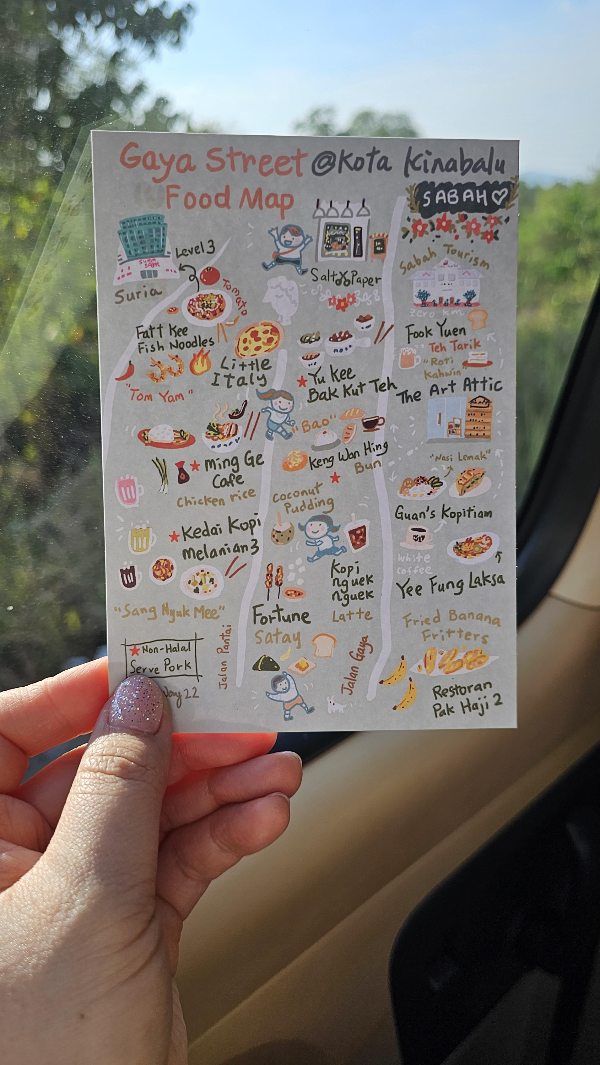 Gaya Street @Kota Kinabalu
Food Map
SABAH
Level 3
Suria
Tomato
Fatt Kee
Fish Noodles
"Tom Yam"
Little
Italy
Ming Ge
Cafe
Chicken rice
Kedai Kopi
Melanian 3
"Sang Nyuk Mee"
Non-Halal
Serve Pork
22
Jalan Pantai
Salt X Paper
Yu Kee
Bak Kut Teh
"Bao"
Keng Wan Hing
Bun
Coconut
Pudding
Kopi
nguek
nguek
Latte
Fortune
Satay
Jalan Gaya
Sabah Tourism
Zero KM
Fook Yuen
Teh Tarik
"Roti
Kahwin"
The Art Attic
"Nasi Lemak"
Guan's Kopitiam
White
Coffee
Yee Fung Laksa
Fried Banana
Fritters
Restoran
Pak Haji 2